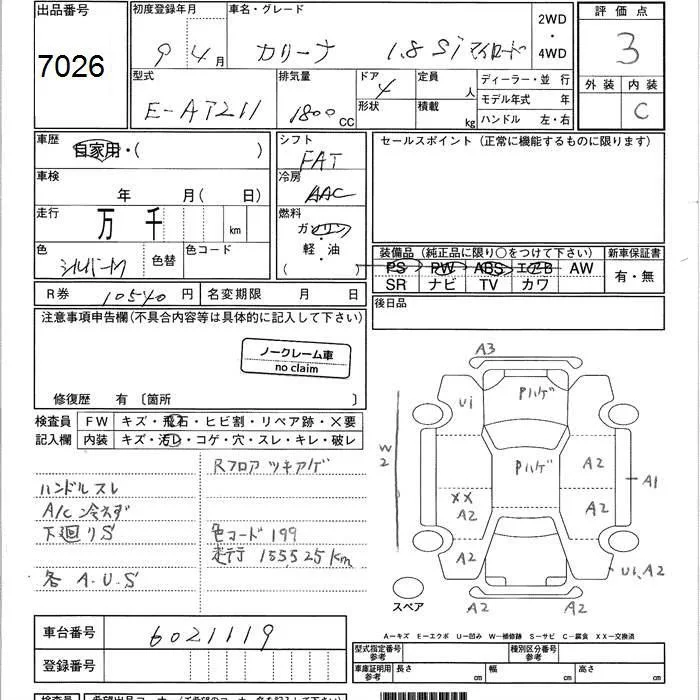 出品番号 初度登録年月 車名・グレード 2WD 評価点
7026 9年 4月 カリーナ 1.8 Si マイロード ・ 3
4WD
型式 排気量 ドア 定員 ディーラー・並行 外装 内装
E-AT211 1800 CC 4 人 モデル年式 年 C
形状 積載 kg ハンドル 左・右
車歴 自家用・( ) シフト セールスポイント(正常に機能するものに限ります)
FAT
車検 冷房
年 月( 日) AAC
走行 万 千 km 燃料
ガソリン
・
軽・油
( )
色 シルバーM 色替 色コード 装備品(純正品に限り○をつけて下さい) 新車保証書
PS PW ABS エアB AW 有・無
SR ナビ TV カワ
R券 10540 円 名変期限 月 日 後日品
注意事項申告欄(不具合内容等は具体的に記入して下さい)
ノークレーム車
no claim
修復歴 有〔箇所 〕
検査員 FW キズ・飛石・ヒビ割・リペア跡・×要
記入欄 内装 キズ・汚レ・コゲ・穴・スレ・キレ・破レ
Rフロア ツキアゲ
ハンドル スレ
A/C 冷えず
下廻りS 色コード 199
走行 155,525km
各 A.U.S
A3
Ui Pハゲ
W2 Pハゲ A2 A1
XX A2 A2
A2 A2 Ui, A2
スペア A2 A2
A-キズ E-エクボ U-凹み W-補修跡 S-サビ C-腐食 XX-交換済
車台番号 6021119
型式指定番号 参考 種別区分番号 参考
登録番号 車庫証明用 参考 長さ cm 幅 cm 高さ cm